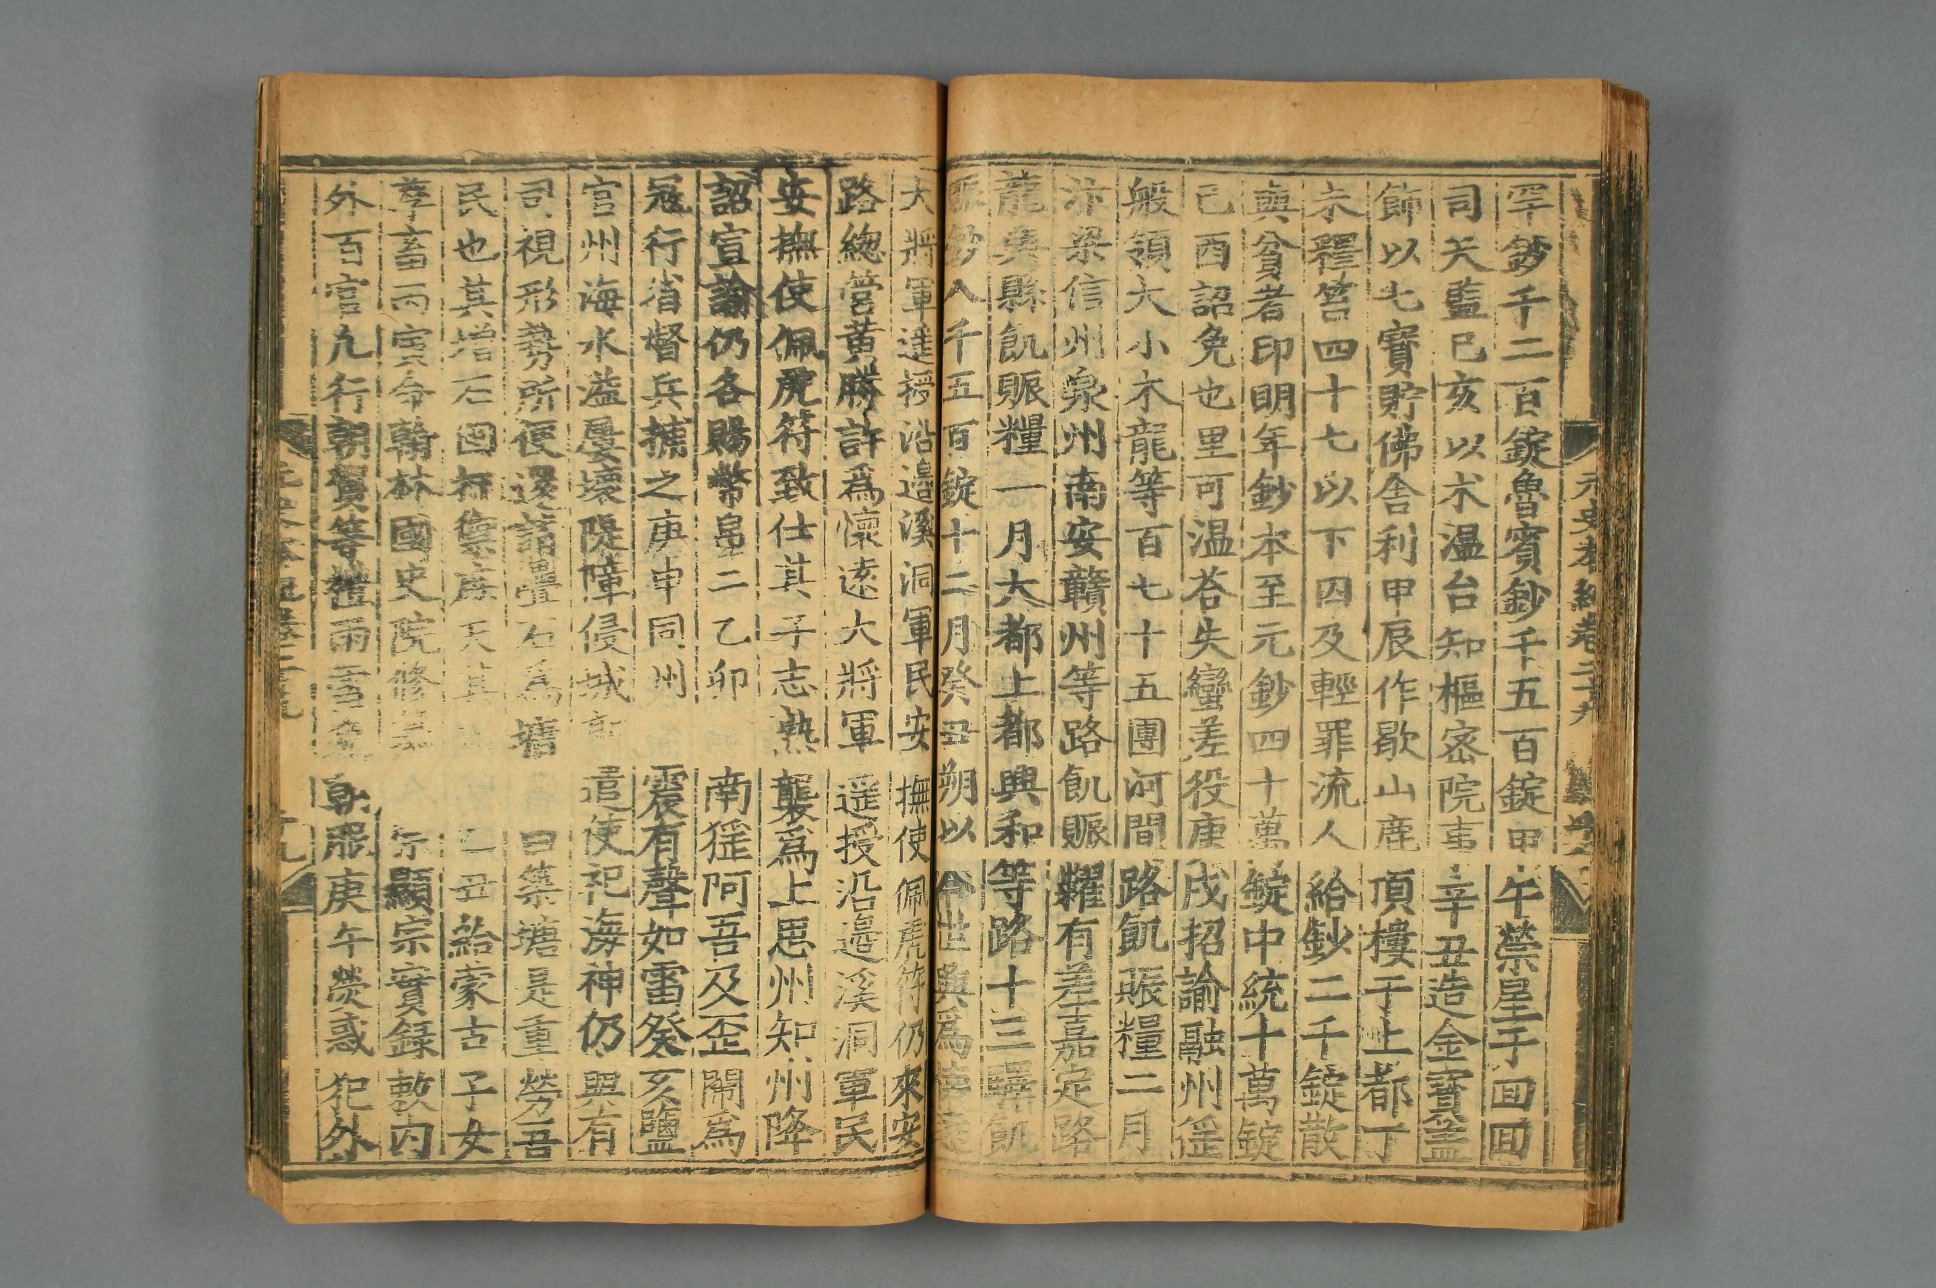 元史本紀卷二十九
罕鈔千二百錠魯賓鈔千五百錠甲午祭星于回回
司天監己亥以朮溫台知樞密院事辛丑造金寶蓋
飾以七寶貯佛舍利甲辰作歇山鹿頂樓于上都丁
未釋笞四十七以下囚及輕罪流人給鈔二千錠散
與貧者印明年鈔本至元鈔四十萬錠中統十萬錠
己酉詔免也里可溫荅失蠻差役庚戌招諭融州徭
般領大小木龍等百七十五團河間路飢賑糧二月
汴梁信州泉州南安贛州等路飢賑糶有差嘉定路
龍興縣飢賑糧一月大都上都興和等路十三驛飢
賑鈔八千五百錠十二月癸丑朔以岑世興爲懷遠
大將軍遥授沿邉溪洞軍民安撫使佩虎符仍來安
路總管黃勝許爲懷逺大將軍遥授沿邉溪洞軍民
安撫使佩虎符致仕其子志熟襲爲上思州知州降
詔宣諭仍各賜幣帛二乙卯南徭阿吾及歪閙爲
冦行省督兵捕之庚申同州震有聲如雷癸亥鹽
官州海水溢屢壞隄障侵城郭遣使祀海神仍與有
司視形勢所便還請疊石爲塘曰築塘是重勞吾
民也其增石囤捍禦庶天其乙丑給蒙古子女
孳畜丙寅命翰林國史院修纂宗顯宗實錄敕内
外百官凡行朝賀等禮雨雪免朝服庚午熒惑犯外
元史本紀卷二十九
十九